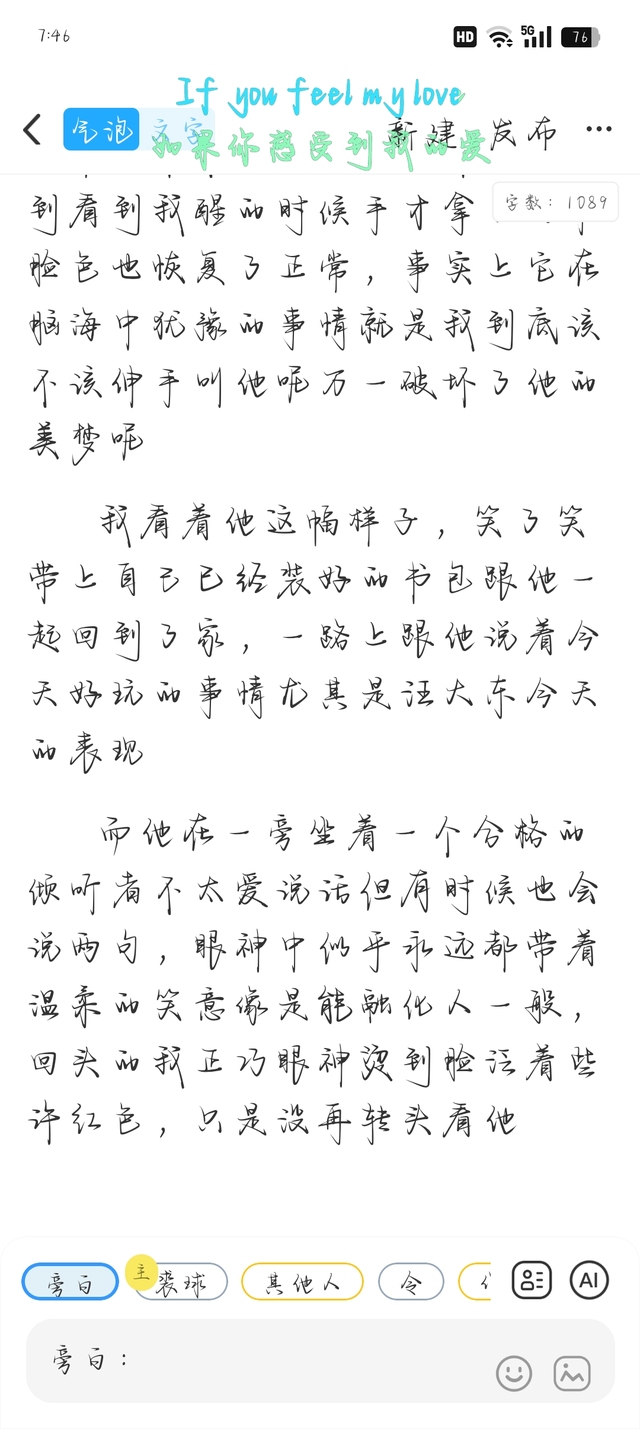 7:46
HD
5G
76
If you feel my love
如果你感受到我的爱
气泡 文字 新建 发布 ...
字数：1089
到看到我醒的时候手才拿
脸色也恢复了正常，事实上它在
脑海中犹豫的事情就是我到底该
不该伸手叫他呢万一破坏了他的
美梦呢
我看着他这幅样子，笑了笑
带上自己已经装好的书包跟他一
起回到了家，一路上跟他说着今
天好玩的事情尤其是汪大东今天
的表现
而他在一旁坐着一个合格的
倾听者不太爱说话但有时候也会
说两句，眼神中似乎永远都带着
温柔的笑意像是能融化人一般，
回头的我正巧眼神烫到脸泛着些
许红色，只是没再转头看他
旁白
主
裘球
其他人
令
AI
旁白：